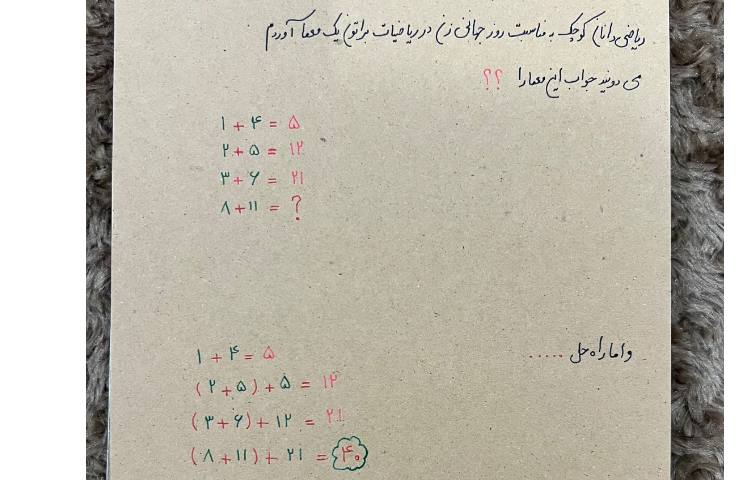 ریاضی دانان کوچک به مناسبت روز جهانی زن در ریاضیات براتون یک معما آوردم
می دونید جواب این معما را ؟؟
۱ + ۴ = ۵
۲ + ۵ = ۱۲
۳ + ۶ = ۲۱
۸ + ۱۱ = ?
و اما راه حل .....
۱ + ۴ = ۵
(۲ + ۵) + ۵ = ۱۲
(۳ + ۶) + ۱۲ = ۲۱
(۸ + ۱۱) + ۲۱ = ۴۰